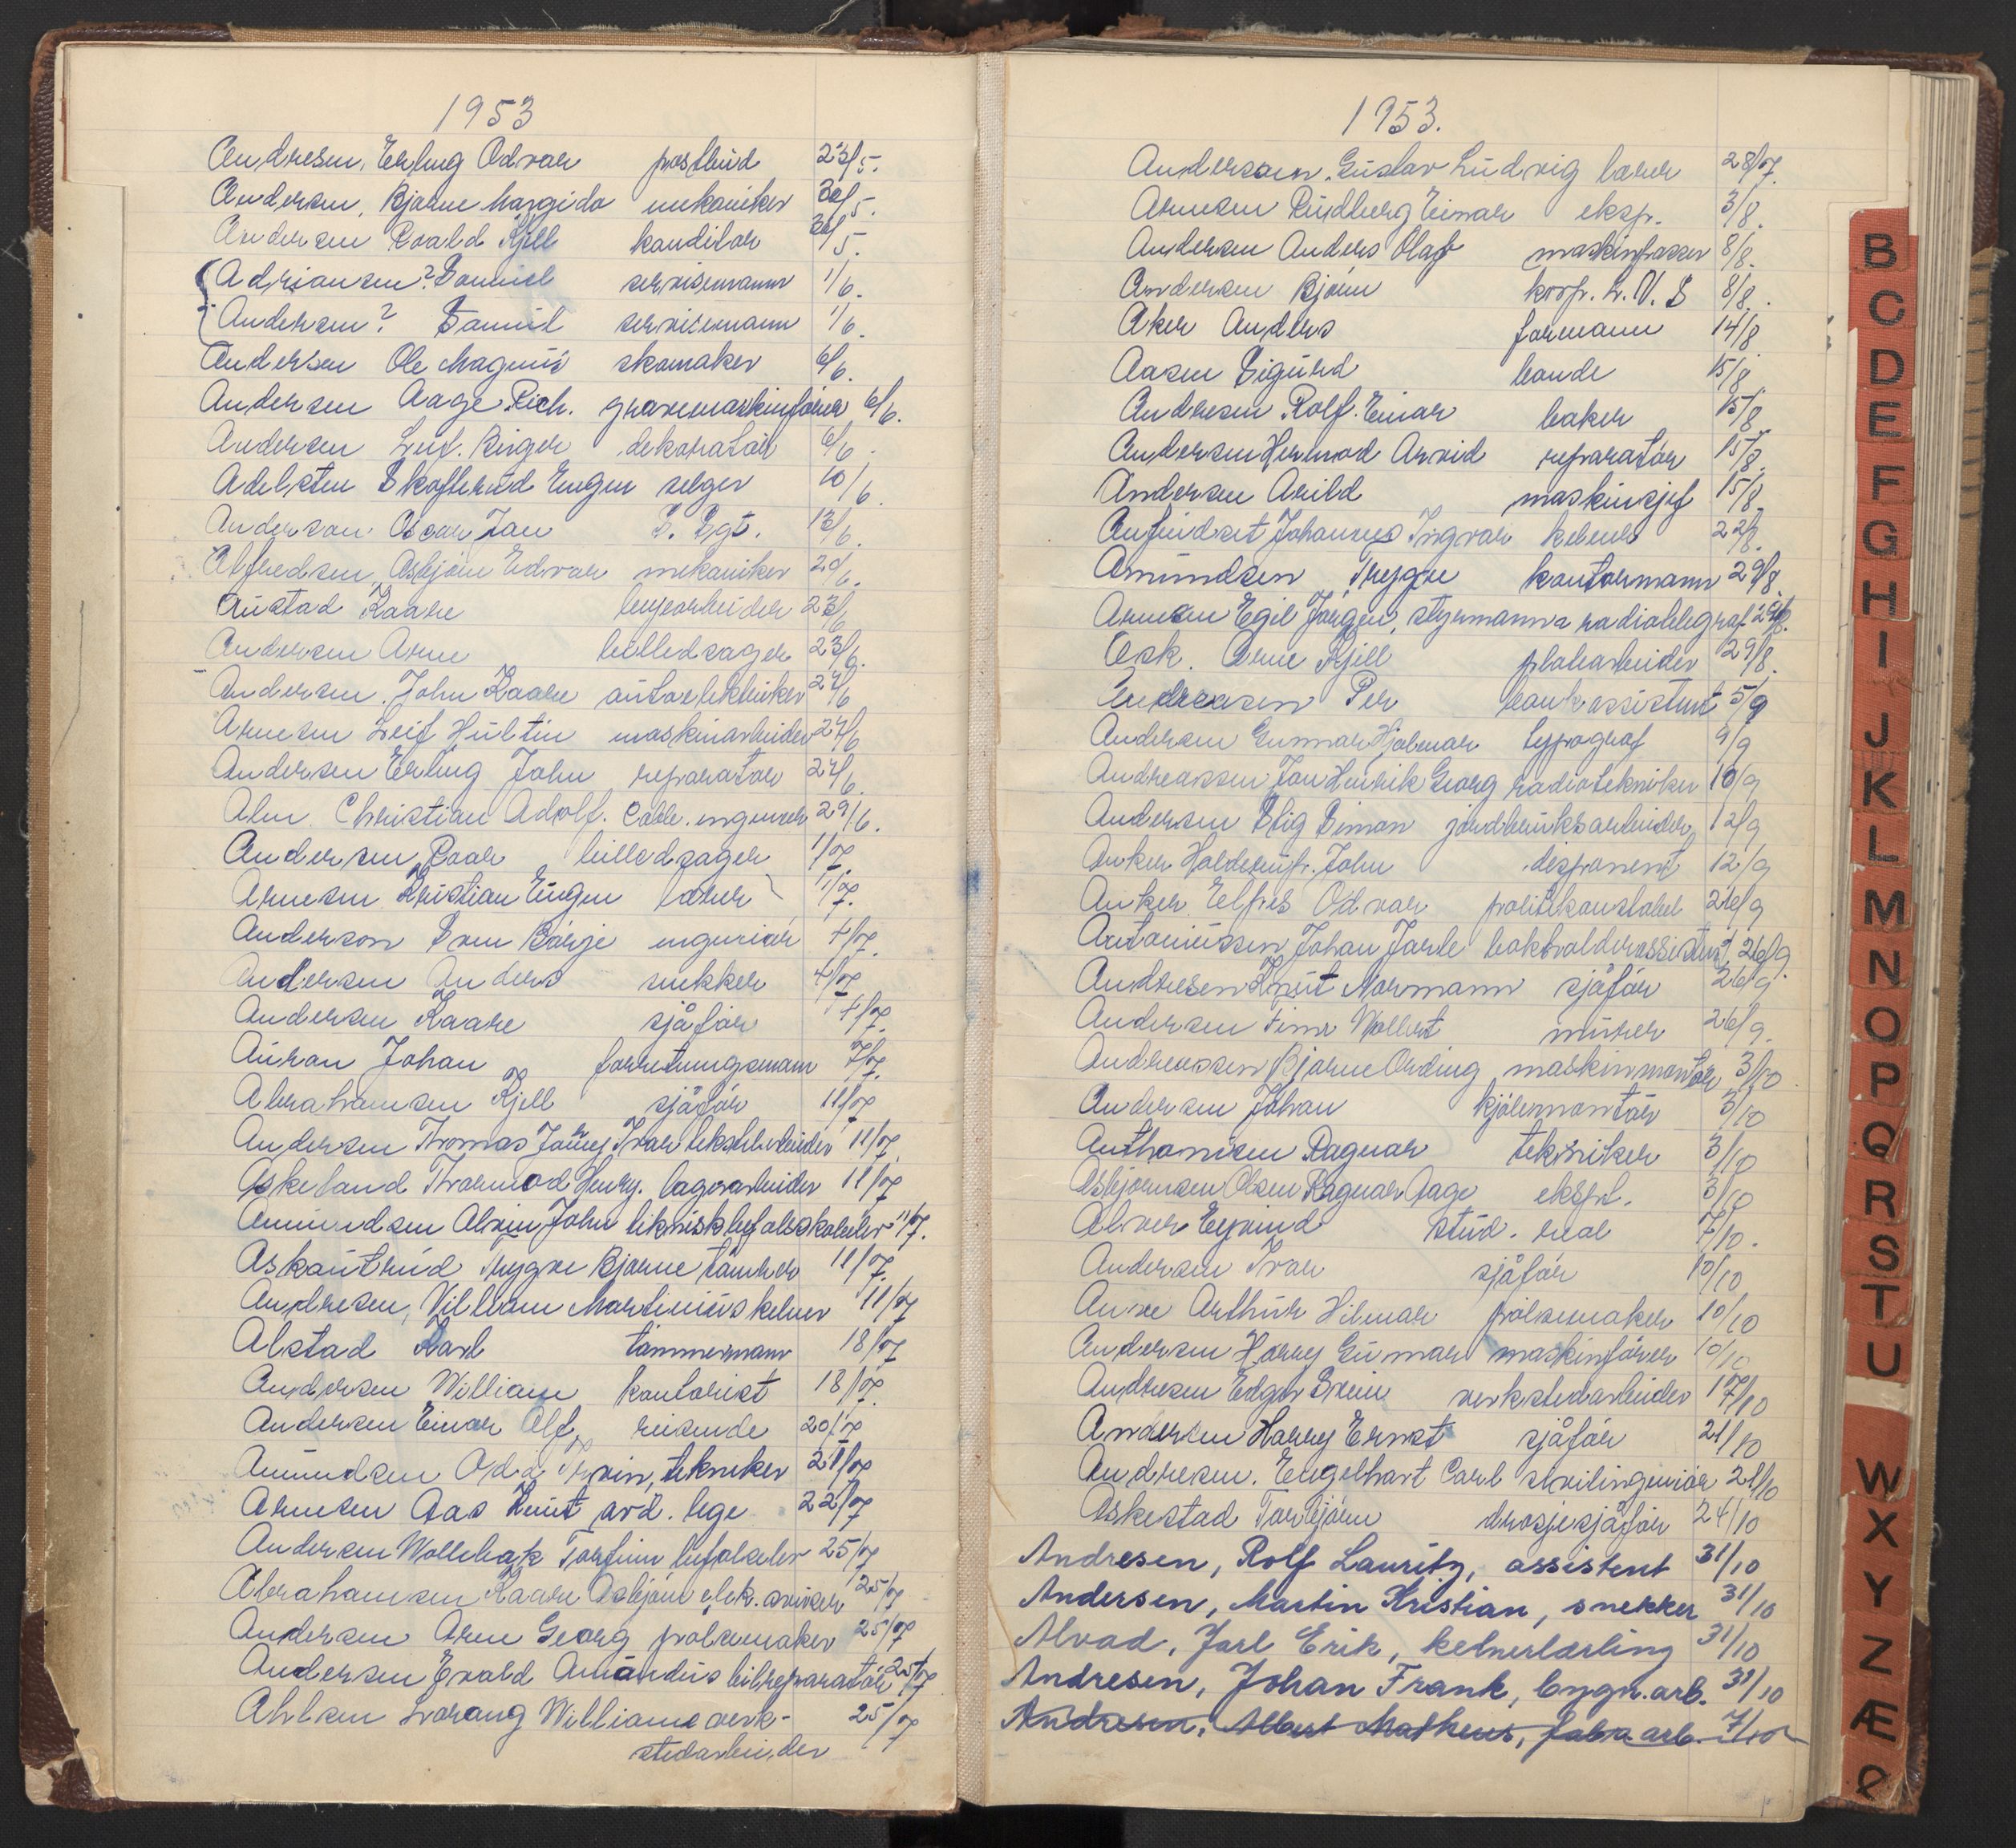 1953
Andresen, Erling Odvar postbud 23/5.
Andersen, Bjarne Margido mekaniker 30/5.
Andersen Roald Kjell konditor 30/5.
Adriansen? Daniel servisemann 1/6.
Andersen? Daniel servisemann 1/6.
Andersen Ole Magnus skomaker 6/6.
Andersen Aage Rich. gravemaskinfører 6/6.
Andersen Leif Birger dekoratør 6/6.
Adelsten Skofterud Eugen selger 10/6.
Anderson Oscar Jan S. Sgt. 13/6.
Alfredsen, Asbjørn Edvar mekaniker 20/6.
Austad Kaare 23/6
Andersen Arne billedsager 23/6.
Andersen. John Kaare autoelektriker 27/6
Arnesen Leif Hultin maskinarbeider 27/6
Andersen Erling John reparatør 27/6.
Alm Christian Adolf. Colb. ingeniør 29/6.
Andersen Roar billedsager 1/7.
Arnesen Kristian Eugen lærer 1/7.
Anderson Sven Børje ingeniør 4/7.
Andersen Anders snekker 4/7
Andersen Kaare sjåfør 4/7.
Auran Johan forretningsmann 7/7.
Abrahamsen Kjell sjåfør 11/7
Andersen Thomas Ivar tekstilarbeider 11/7.
Askeland Thormod Henry. lagerarbeider 11/7
Amundsen Alvin John teknisk befalsskoleelev 11/7.
Askautrud Trygve Bjarne tømrer 11/7.
Andresen, Villiam Martinius kelner 11/7
Alstad Karl tømmermann 18/7
Andersen William kontorist 18/7.
Andersen Einar Alf, reisende 20/7
Amundsen Odd tekniker 21/7
Arnesen Aas Knut avd. lege 22/7
Andersen Wollebæk Torfinn befalselev 25/7
Abrahamsen Kaare Asbjørn elek. sveiser 25/7
Andersen Arne Georg pølsemaker 25/7
Andersen Evald Amandus bilreparatør 25/7
Ahlsen Lorang William verk- 25/7
stedarbeider
1953.
Anderssen. Gustav Ludvig lærer 28/7.
Arnesen Rudberg Einar eksp. 3/8.
Andersen Anders Olaf maskinpasser 8/8.
Andersen Bjørn korp. L.V.S 8/8.
Aker Anders formann 14/8
Aasen Sigurd bonde 15/8.
Andresen Rolf. Einar baker 15/8.
Andersen Hermod Arvid reparatør 15/8.
Andersen Arild maskinsjef 15/8.
Anfindset Johannes Ingvar kelner 22/8.
Amundsen Trygve kontormann 29/8.
Arnesen Egil Jørgen, styrmann radiotelegraf. 29/8.
Ask. Arne Kjell platearbeider 29/8.
Andreasen Per bankassistent 5/9
Andersen Gunnar Hjalmar typograf 9/9
Andreassen Jan Henrik Georg radiotekniker 10/9
Andersen Stig Simon jordbruksarbeider 12/9
Anker Holderup. John disponent 12/9
Anker Odvar politikonstabel 26/9
Antoniussen Johan Jarle bokholderassistent, 26/9
Andresen Knut Normann sjåfør 26/9.
Andersen Finn Wollert murer 26/9.
Andreassen Bjarne Ording maskinmontør 3/10.
Andersen Johan kjølemontør 3/10
Anthonisen Ragnar tekniker 3/10
Asbjørnsen Olsen Ragnar Aage eksped. 3/10
Alver Eyvind stud. real 7/10.
Andersen Ivar sjåfør 10/10
Aune Arthur Hilmar pølsemaker 10/10
Andersen Harry Gunnar maskinfører 10/10
Andresen Edgar Svein verkstedarbeider 17/10
Andersen Harry Ernst sjåfør 21/10
Andresen. Engelhart Carl sivilingeniør 21/10
Askestad Torbjørn drosjesjåfør 24/10
Andresen, Rolf Lauritz, assistent 31/10
Andersen, Martin Kristian, snekker 31/10
Alvad, Jarl Erik, kelnerlærling 31/10
Andresen, Johan Frank, bygn.arb. 31/10
Andresen, Albert Matheus, fabr.arb. 7/10
B
C
D
E
F
G
H
I
J
K
L
M
N
O
P
Q
R
S
T
U
W
X
Y
Z
Æ